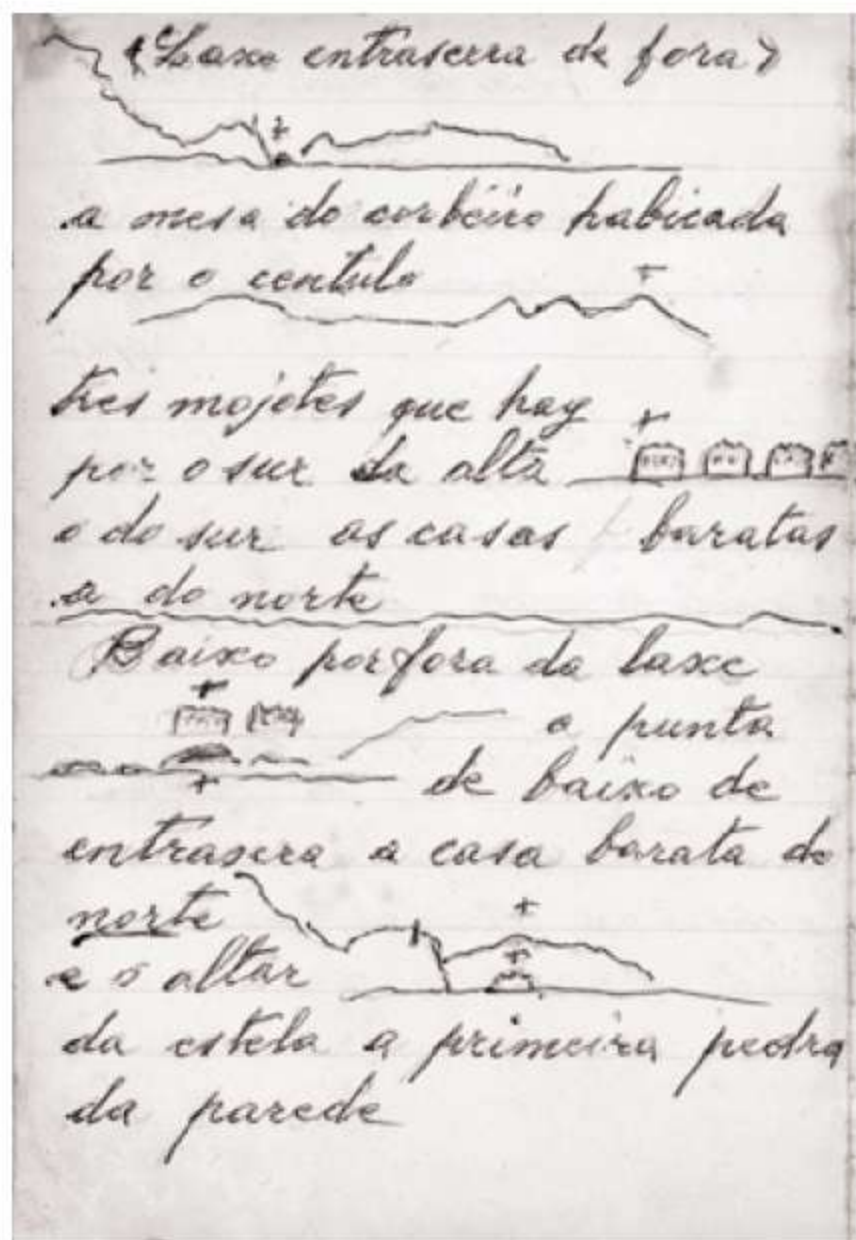 (Laxe entraserra de fora)
a mesa do corbeiro habicada
por o centulo
tres mojotes que hay
por o sur da alta
o do sur as casas baratas
a do norte
Baixo por fora da laxe
a punta
de baixo de
entrasera a casa barata do
norte
e o altar
da estela a primeira pedra
da parede